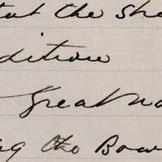 at the Sh
dition
Great
ing the Boar